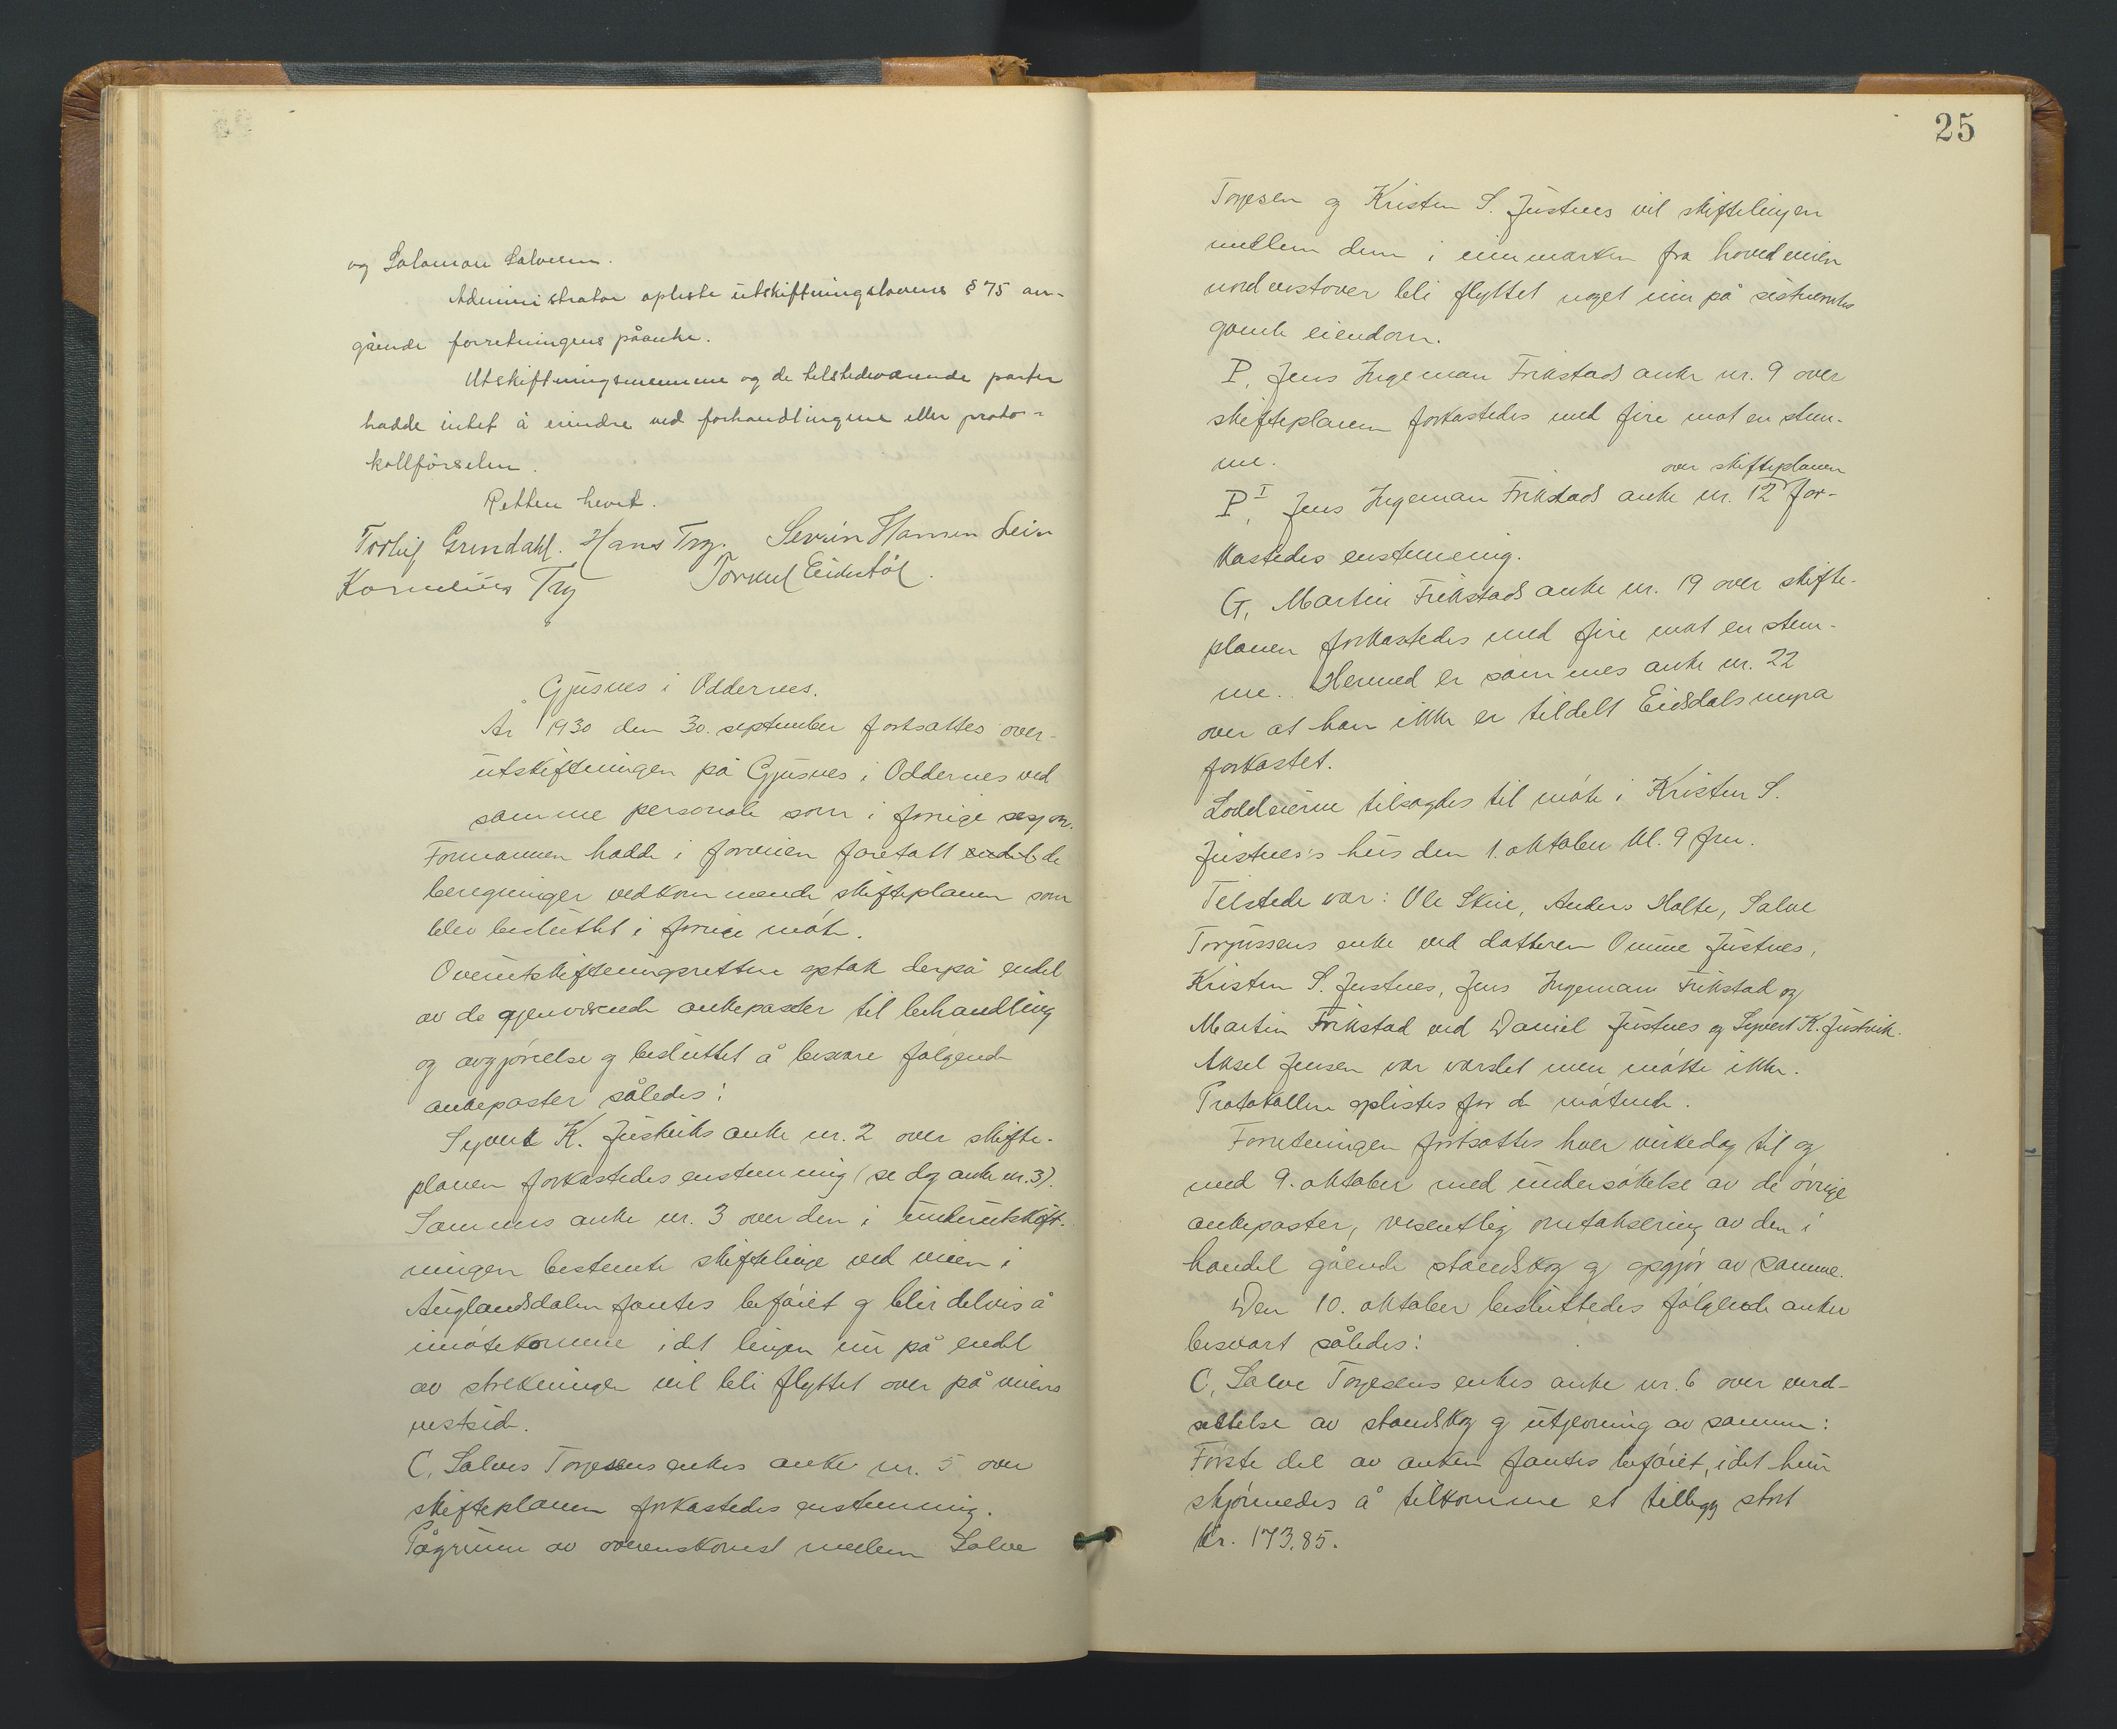 og Salomon Salvesen.
Administrator opleste utskiftningslovens § 75 an-
gående forretningens påanke.
Utskiftningsmennene og de tilstedeværende parter
hadde intet å erindre ved forhandlingene eller proto-
kollførselen.
Retten hevet.
Torleif Grendahl. Hans Try. Severin Hansen Leire
Kornelius Try Torkel Eidstøl.
Gjusnes i Oddernes.
År 1930 den 30. september fortsattes over-
utskiftningen på Gjusnes i Oddernes ved
samme personale som i forrige sesjon.
Formannen hadde i forveien foretatt endel de
beregninger vedkommende skifteplanen som
blev besluttet i forrige møte.
Overutskiftningsretten optok derpå endel
av de gjenværende ankeposter til behandling
og avgjørelse og besluttet å besvare følgende
ankeposter således:
Syvert K. Justviks anke nr. 2 over skifte-
planen forkastedes enstemmig (se dog anke nr. 3).
Sammes anke nr. 3 over den i underutskift-
ningen bestemte skiftelinje ved veien i
Auglandsdalen fantes beføiet og blir delvis å
imøtekomme, idet linjen nu på endel
av strekningen vil bli flyttet over på veiens
vestside.
C, Salves Torjesens enkes anke nr. 5 over
skifteplanen forkastedes enstemmig.
Pågrunn av overenskomst mellem Salve
25
Torjesen og Kristen S. Justnes vil skiftelinjen
mellem dem i innmarken fra hovedveien
nordvestover bli flyttet noget inn på sistnevntes
gamle eiendom.
P, Jens Ingeman Frikstads anke nr. 9 over
skifteplanen forkastedes med fire mot en stem-
me.
over skifteplanen
P I, Jens Ingeman Frikstads anke nr. 12 for-
kastedes enstemmig.
G, Martin Frikstads anke nr. 19 over skifte-
planen forkastedes med fire mot en stem-
me. Hermed er sammes anke nr. 22
over at han ikke er tildelt Eidsdalsmyra
forkastet.
Loddeierne tilsagdes til møte i Kristen S.
Justnes's hus den 1. oktober kl. 9 fm.
Tilstede var: Ole Skue, Anders Holte, Salve
Torjussens enke ved datteren Omme Justnes,
Kristen S. Justnes, Jens Ingeman Frikstad og
Martin Frikstad ved Daniel Justnes og Syvert K. Justvik.
Aksel Jensen var varslet men møtte ikke.
Protokollen oplestes for de møtende.
Forretningen fortsattes hver virkedag til og
med 9. oktober med undersøkelse av de øvrige
ankeposter, vesentlig omtaksering av den i
handel gående standskog og opgjør av samme.
Den 10. oktober besluttedes følgende anker
besvart således:
C, Salve Torjesens enkes anke nr. 6 over verd-
settelse av standskog og utjevning av samme:
Første del av anken fantes beføiet, idet hun
skjønnedes å tilkomme et tillegg stort
kr. 173.85.